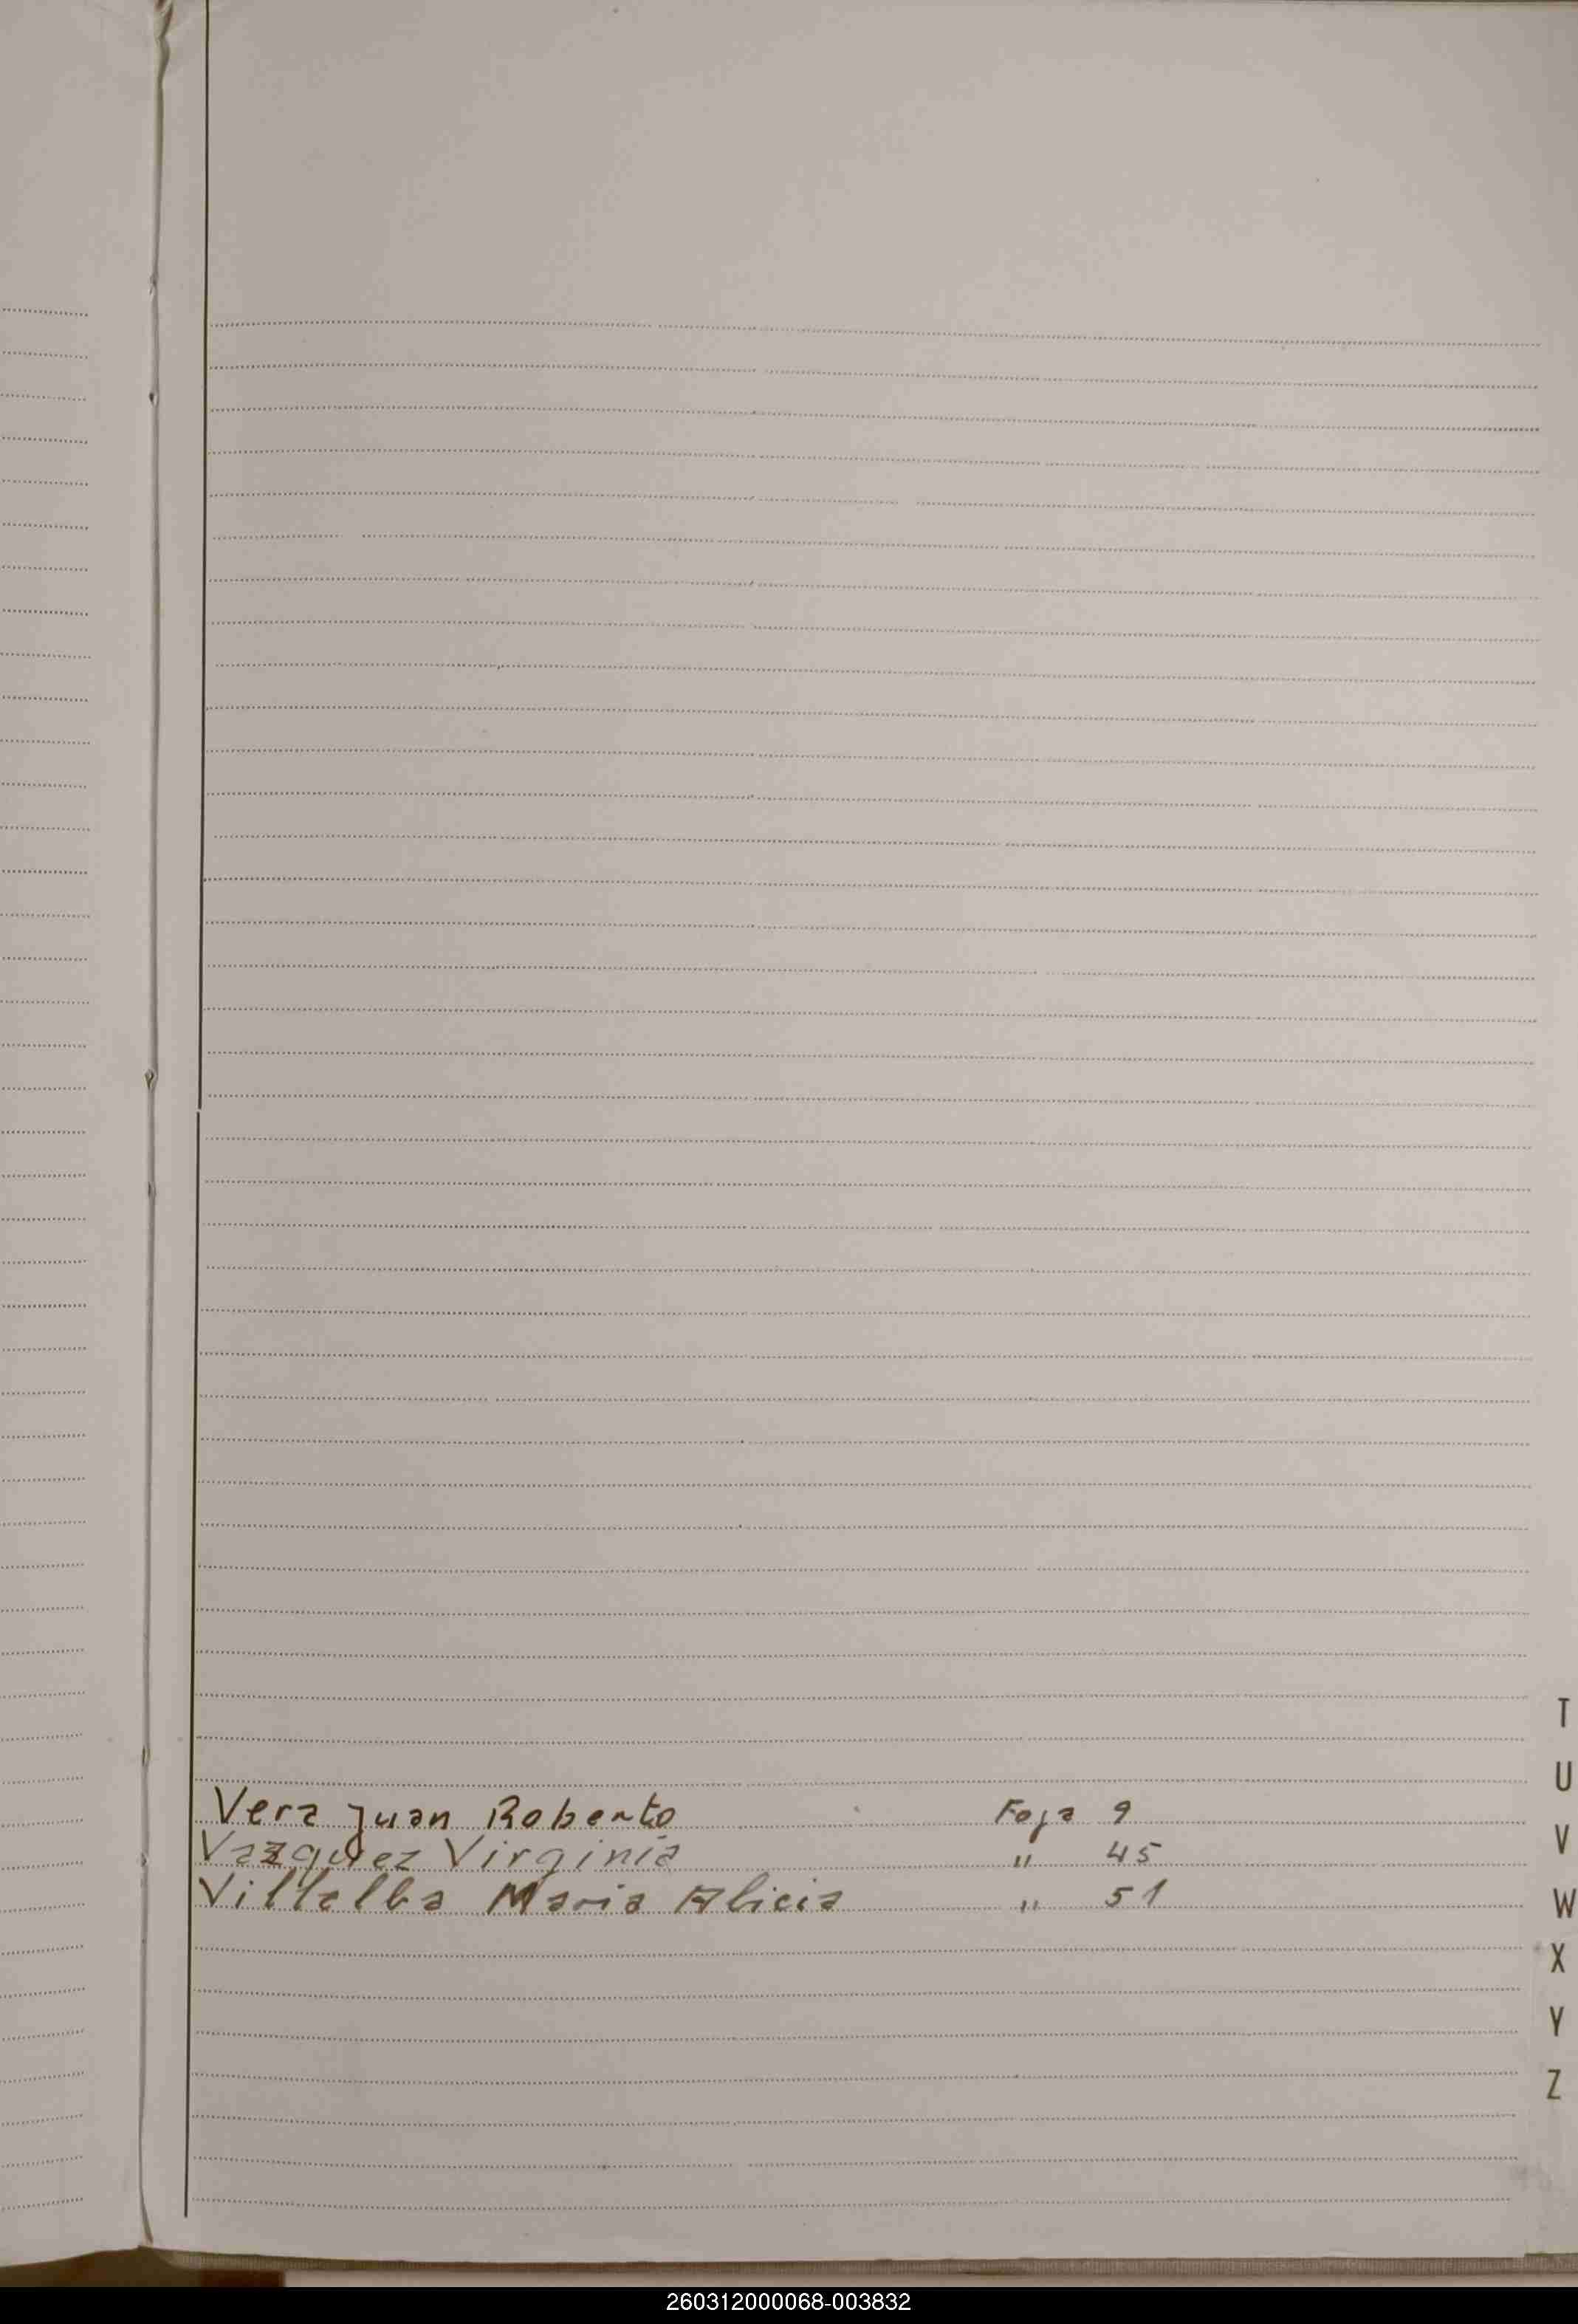 Vera Juan Roberto Foja 9
Vazquez Virginia " 45
Villalba Maria Alicia " 51
T
U
V
W
X
Y
Z
260312000068-003832